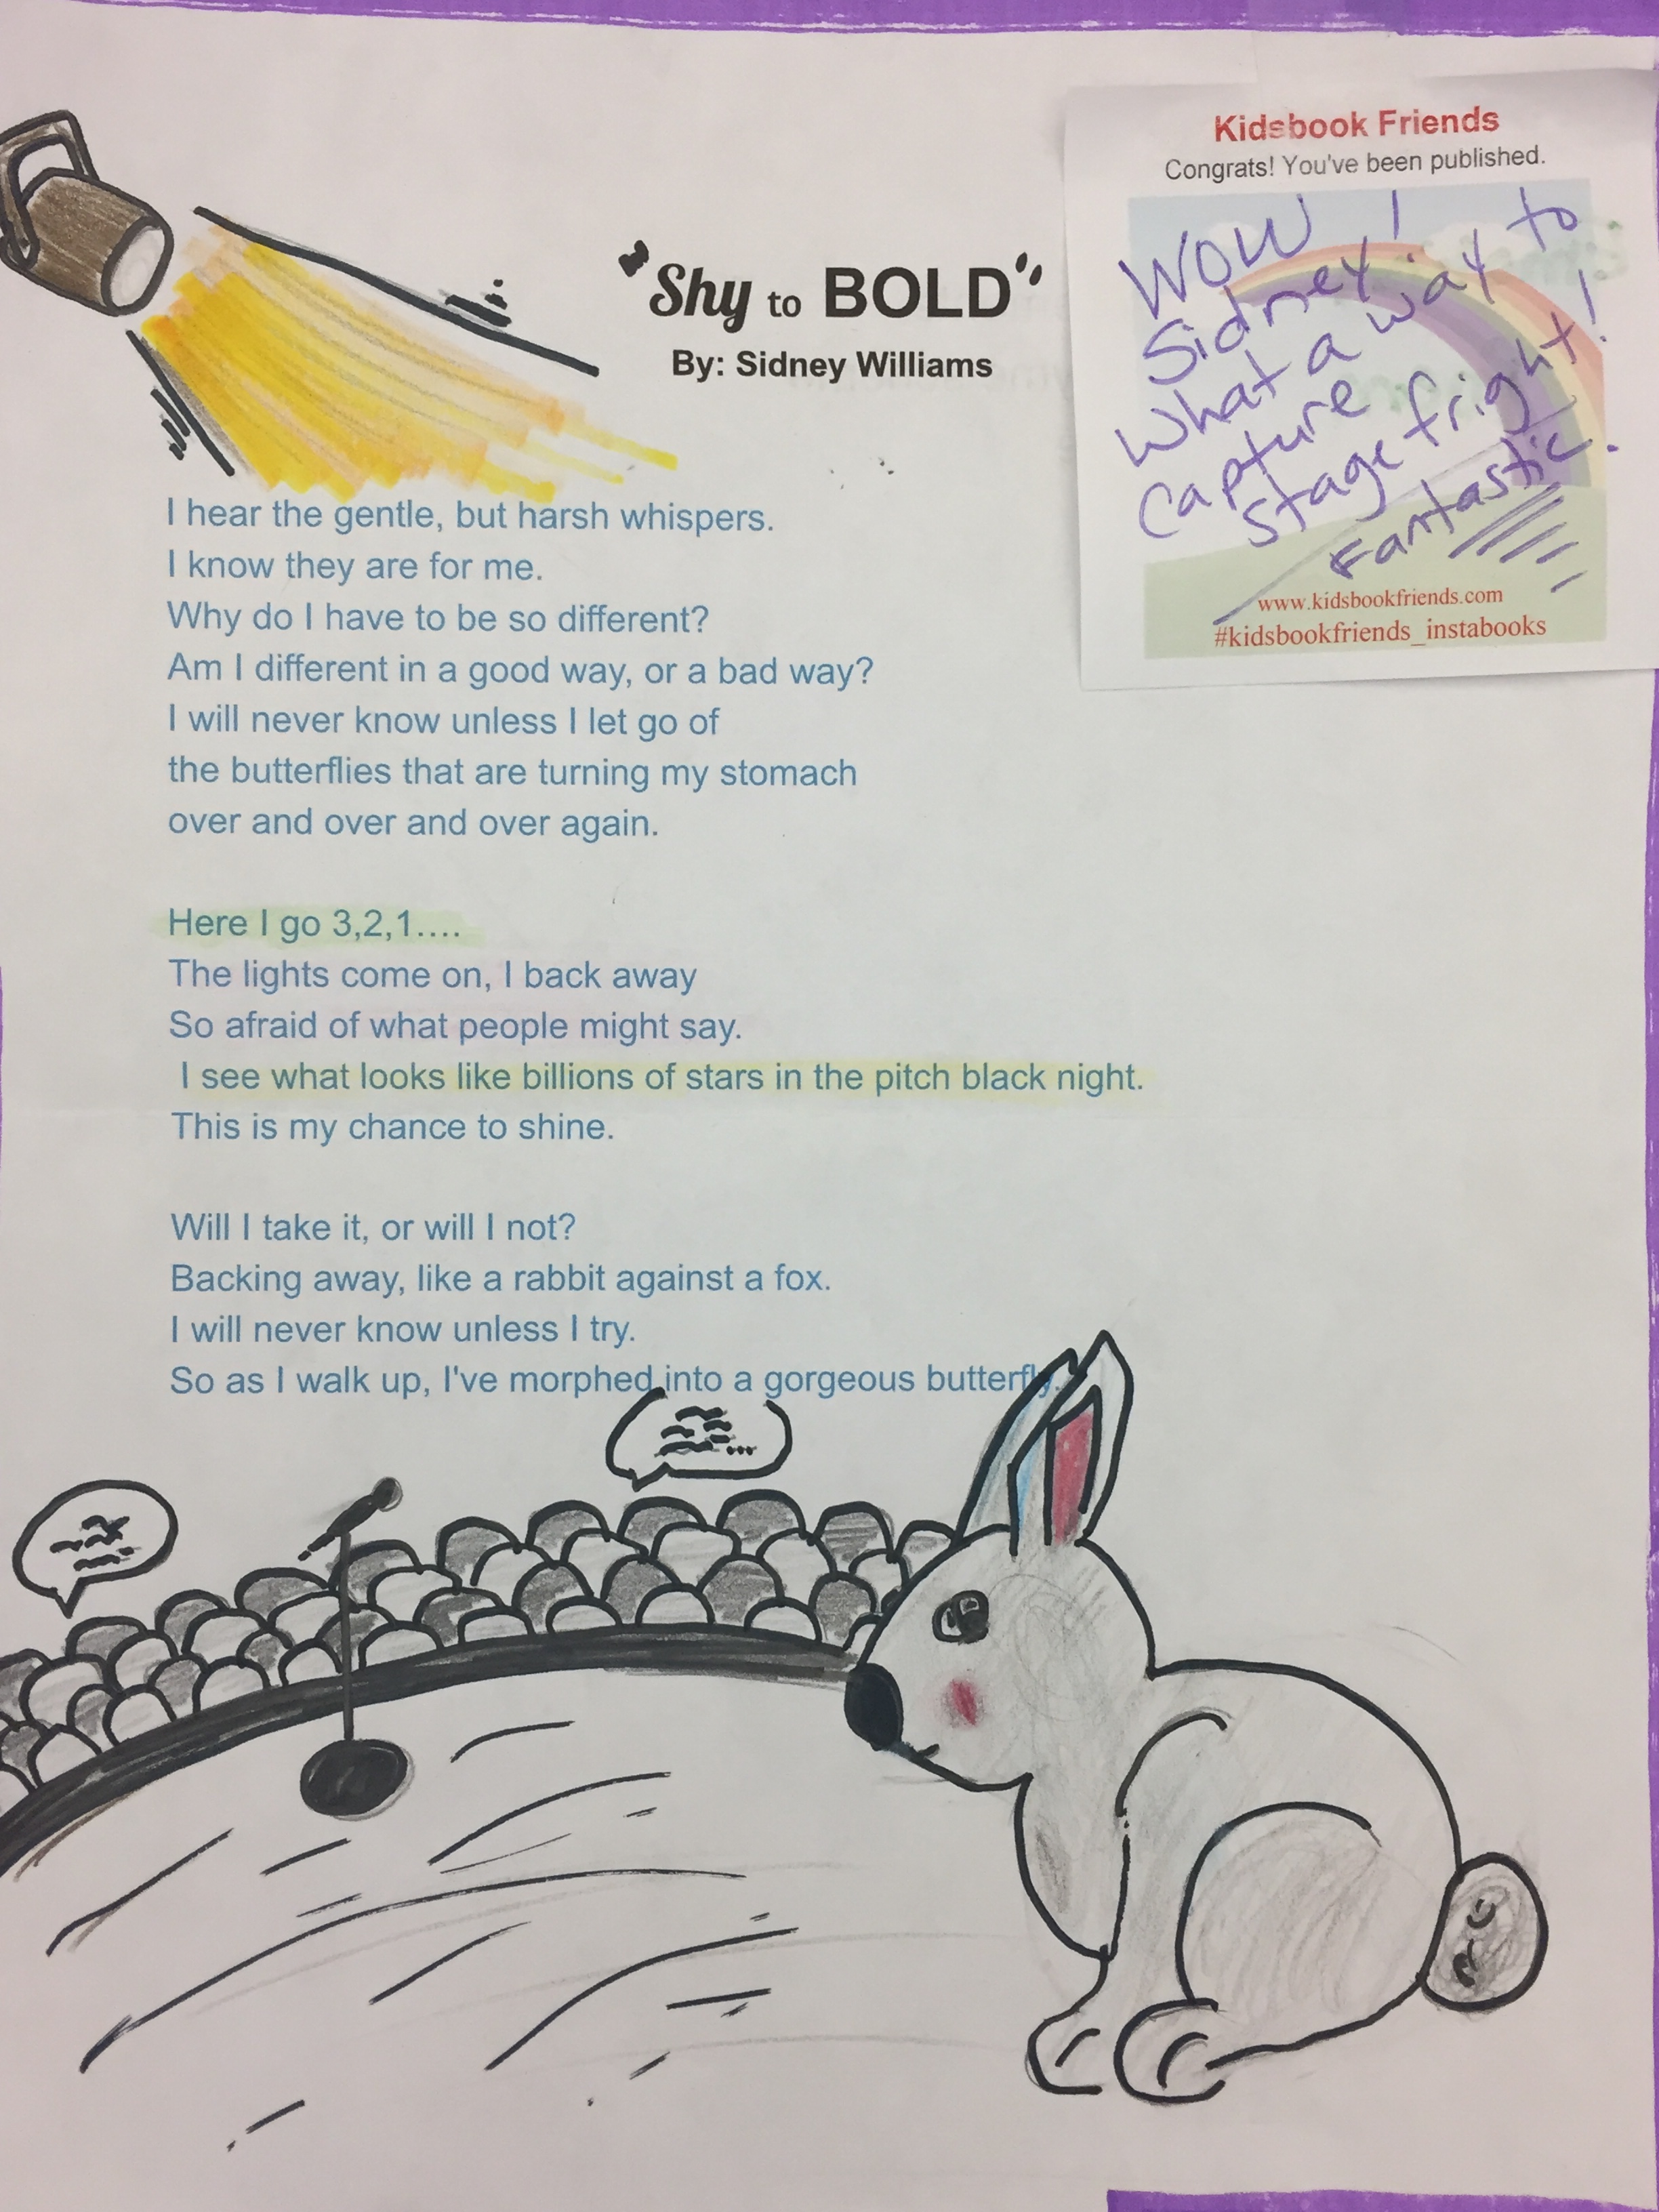 "Shy to BOLD"
By: Sidney Williams
Kidsbook Friends
Congrats! You've been published.
WOW !
Sidney!
What a way to
capture
stage fright!
Fantastic.
www.kidsbookfriends.com
#kidsbookfriends_instabooks
I hear the gentle, but harsh whispers.
I know they are for me.
Why do I have to be so different?
Am I different in a good way, or a bad way?
I will never know unless I let go of
the butterflies that are turning my stomach
over and over and over again.
Here I go 3,2,1....
The lights come on, I back away
So afraid of what people might say.
I see what looks like billions of stars in the pitch black night.
This is my chance to shine.
Will I take it, or will I not?
Backing away, like a rabbit against a fox.
I will never know unless I try.
So as I walk up, I've morphed into a gorgeous butterfly.